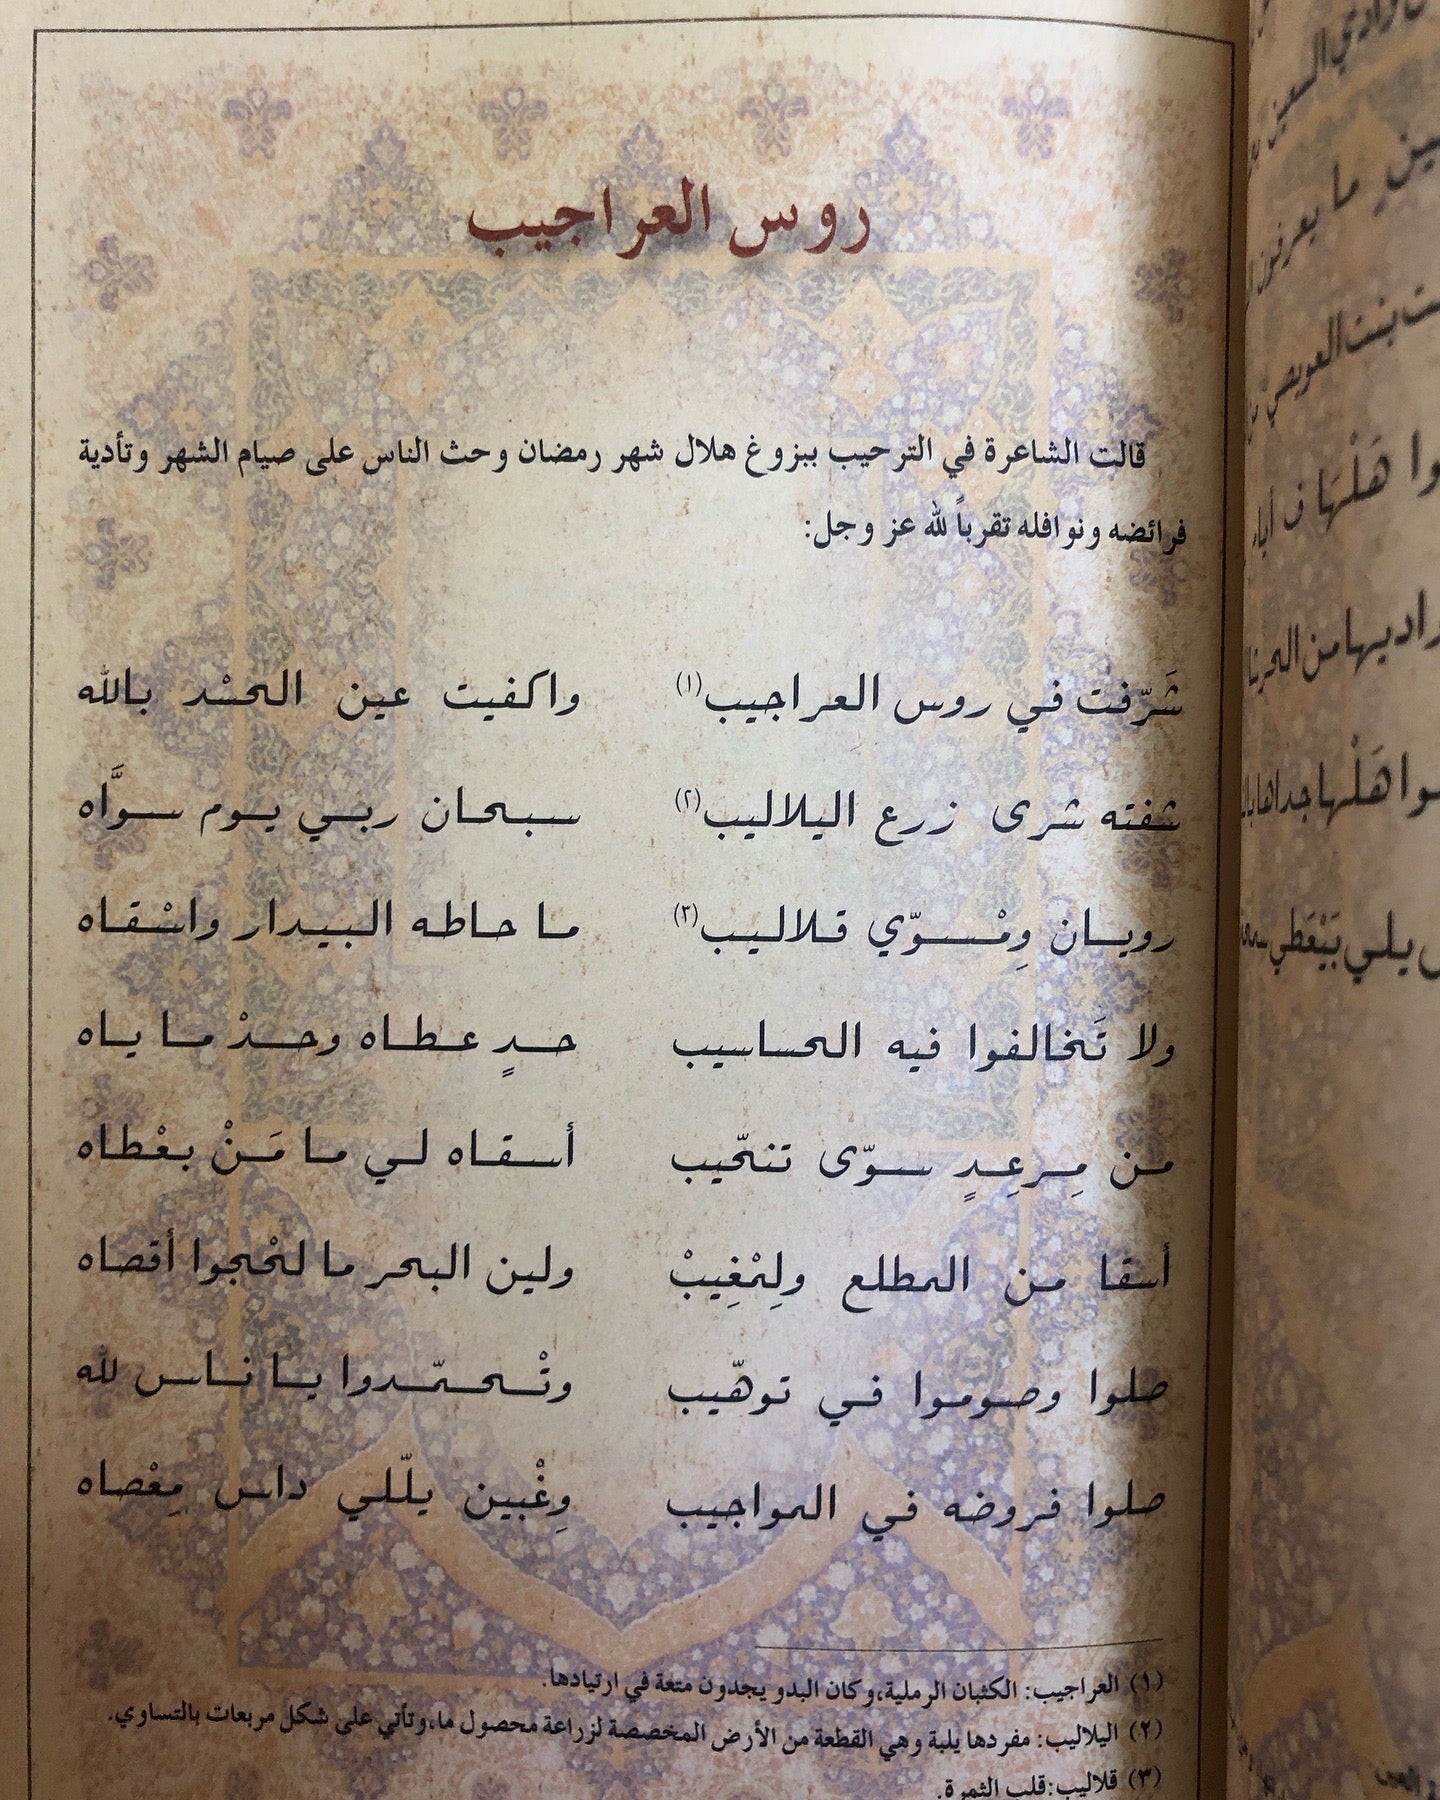 روس العراجيب
قالت الشاعرة في الترحيب ببزوغ هلال شهر رمضان وحث الناس على صيام الشهر وتأدية
فرائضه ونوافله تقرباً لله عز وجل:
شَرّفت في روس العراجيب(١) واكفيت عين الحسْد بالله
شفته شرى زرع اليلاليب(٢) سبحان ربي يوم سوَّاه
رويان وِمْسوّي قلاليب(٣) ما حاطه البيدار واسْقاه
ولا تَخالفوا فيه الحاسيب حدٍ عطاه وحدْ ما ياه
من مِرعِدٍ سوّى تنحّيب أسقاه لي ما مَنْ بعْطاه
أسقا من المطلع ولِمْغِيبْ ولين البحر ما لحْجوا أقصاه
صلوا وصوموا في توهّيب وتْحمّدوا يا ناس لله
صلوا فروضه في المواجيب وِغْبين يلّلي داس مِعْصاه
(١) العراجيب: الكثبان الرملية، وكان البدو يجدون متعة في ارتيادها.
(٢) اليلاليب: مفردها يلبة وهي القطعة من الأرض المخصصة لزراعة محصول ما، وتأتي على شكل مربعات بالتساوي.
(٣) قلاليب: قلب الثمرة.
وادي
ما يعرفون
بنت العويصي
هَلْها
من
هَلْها جداها
يلي بَيْعَطي